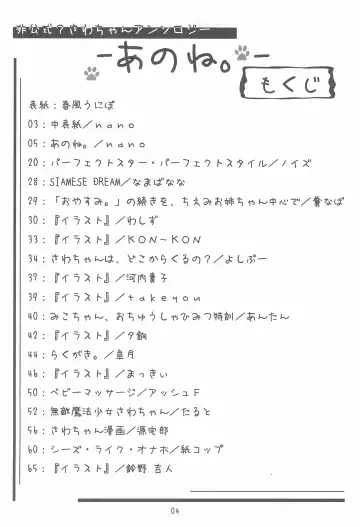 非公式?さわちゃんアンソロジー
-あのね。-
もくじ
表紙:春風うにぽ
03:中表紙/nano
05:あのね。/nano
20:パーフェクトスター・パーフェクトスタイル/ノイズ
28:SIAMESE DREAM/なまばなな
29:「おやすみ。」の続きを、ちえみお姉ちゃん中心で/糞なぱ
30:『イラスト』/わしず
33:『イラスト』/KON~KON
34:さわちゃんは、どこからくるの?/よしぷー
37:『イラスト』/河内貴子
39:『イラスト』/takeyou
40:みこちゃん、おちゅうしゃひみつ特訓/あんたん
42:『イラスト』/夕餉
44:らくがき。/皐月
46:『イラスト』/まっきぃ
50:ベビーマッサージ/アッシュF
52:無敵魔法少女さわちゃん/たると
56:さわちゃん漫画/源定郎
60:シーズ・ライク・オナホ/紙コップ
65:『イラスト』/鈴野 吉人
04